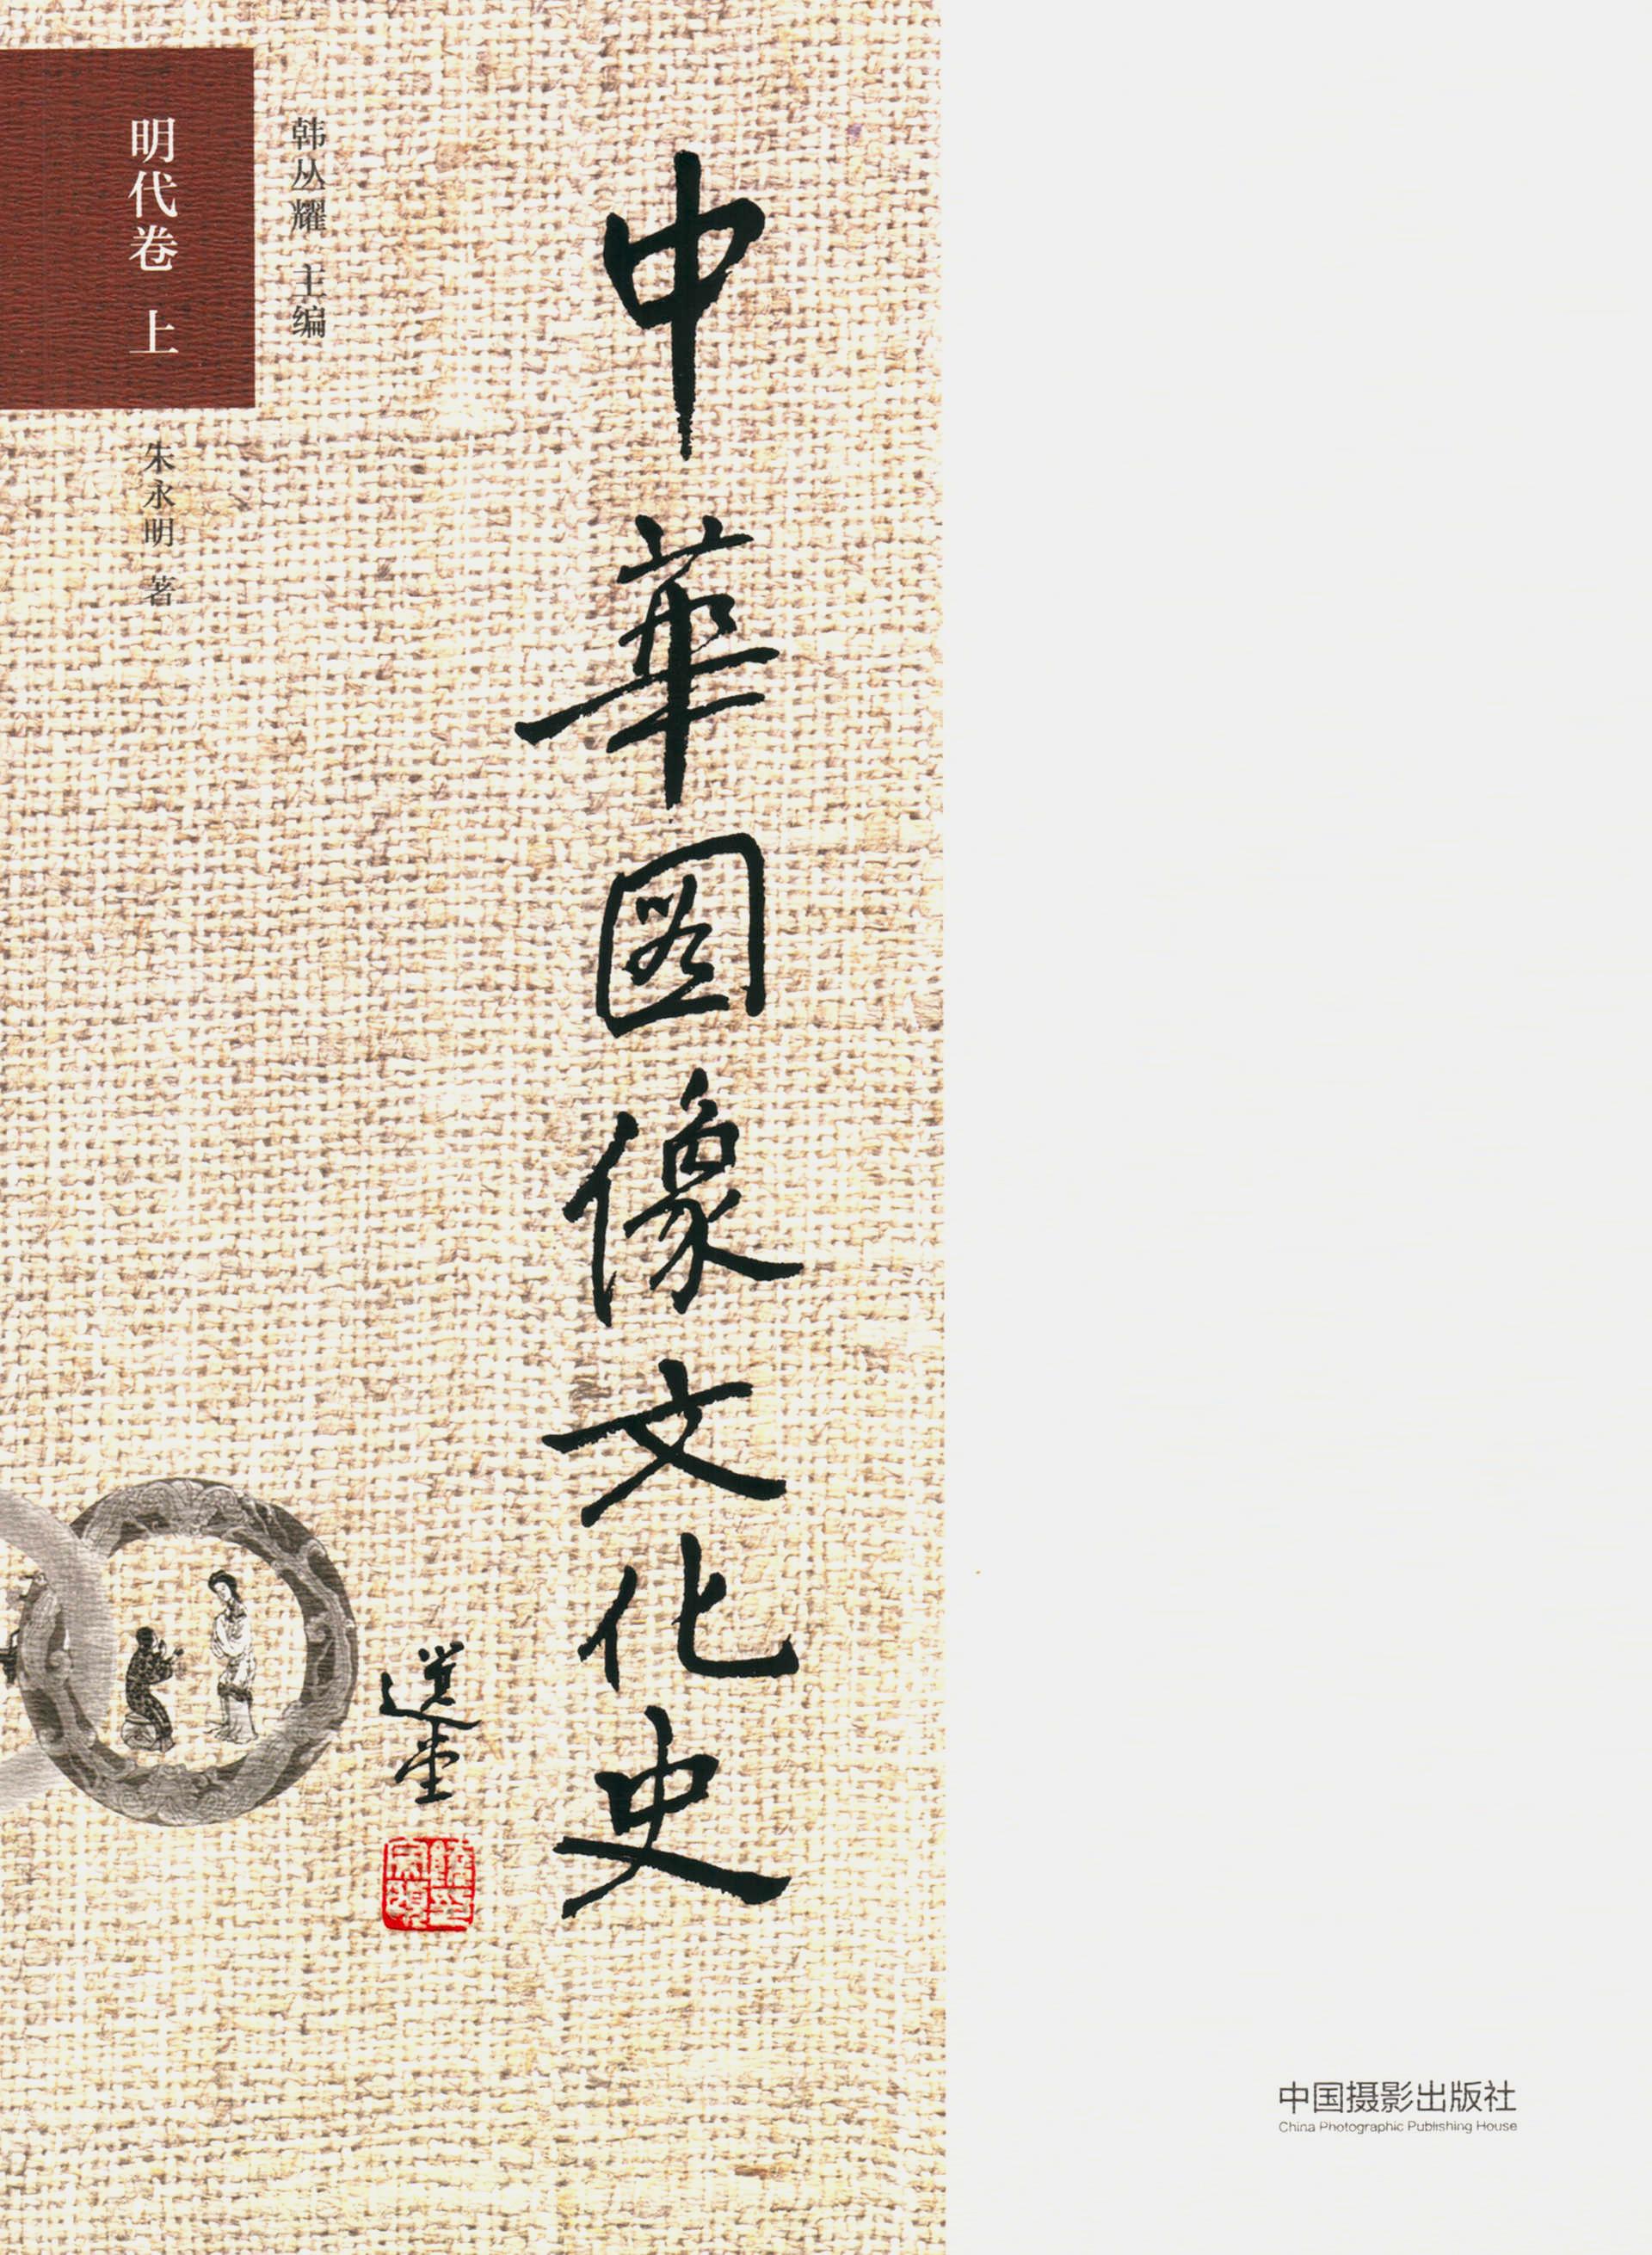 中華圖像文化史
選堂
韩丛耀 主编
明代卷 上
朱永明 著
中国摄影出版社
China Photographic Publishing House